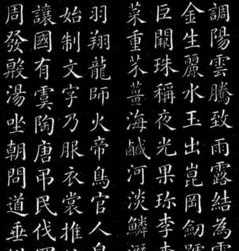 調陽雲騰致雨露結為
金生麗水玉出崑岡劍
巨闕珠稱夜光果珍李
菜重芥薑海鹹河淡鱗
羽翔龍師火帝鳥官人
始制文字乃服衣裳推
讓國有虞陶唐吊民伐
周發殷湯坐朝問道垂